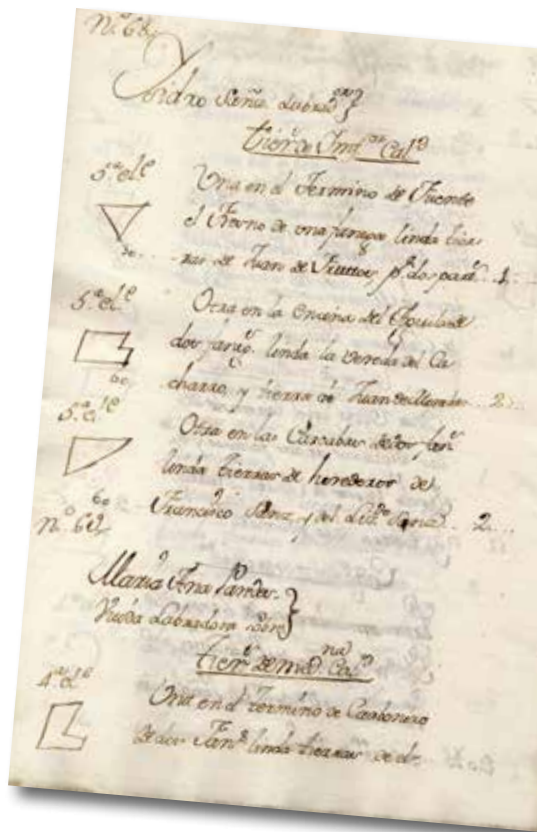 N.º 68.
Ysidro Labrad.or}
tier.s de Inf.or Cal.d
5.ª cl.e Una en el Termino de Fuente
el de una fanega linda tier-
ras de Juan de Fruttos p.r dos part.s 1
5.ª cl.e Otra en la Encina del de
dos faneg.s linda la vereda del Ca
charro, y tierra de Juan 2
5.ª cl.e Otra en las Carcabas de dos fan.s
linda tierras de herederos de
Francisco Sanz y del 2
N.º 69
Maria Ana
Viuda Labradora Pobre}
tier.s de med.na Cal.d
4.ª cl.e Una en el termino de Carbonero
de dos Fan.s linda tierras de el